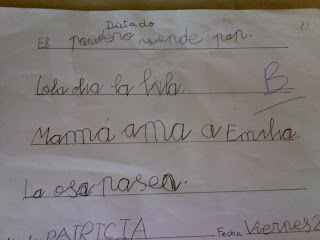 Dictado
El panadero vende pan.
Lola dio la lila.
B
Mamá ama a Emilia.
La osa pasea.
PATRICIA Fecha Viernes 2